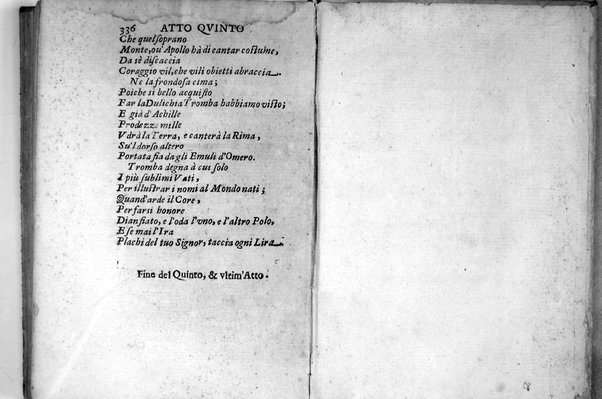 336 ATTO QVINTO
Che quel soprano
Monte, ou' Apollo hà di cantar costume,
Da sè discaccia
Coraggio vil, che vili obietti abbraccia.
Ne la frondosa cima;
Poiche si bello acquisto
Far la Dulichia Tromba habbiamo visto;
E già d'Achille
Prodezze mille
Vdrà la Terra, e canterà la Rima,
Su'l dorso altero
Portata fia dagli Emuli d'Omero.
Tromba degna à cui solo
I più sublimi Vati,
Per illustrar i nomi al Mondo nati;
Quand'arde il Core,
Per farsi honore
Dian fiato, e l'oda l'vno, e l'altro Polo,
E se mai l'Ira
Plachi del tuo Signor, taccia ogni Lira.
Fine del Quinto, & vltim'Atto.